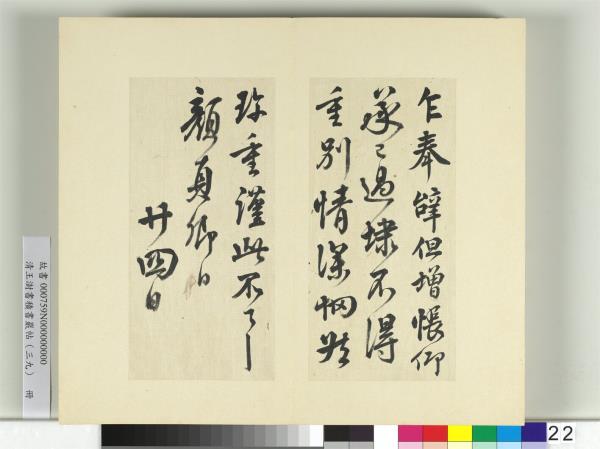 乍奉辭但增悵仰
承已過埭不得
重別情深惘然
珍重謹此不一一
顏真卿白
廿四日
故書 000759N000000000
清王澍書積書巖帖（三九） 冊
22